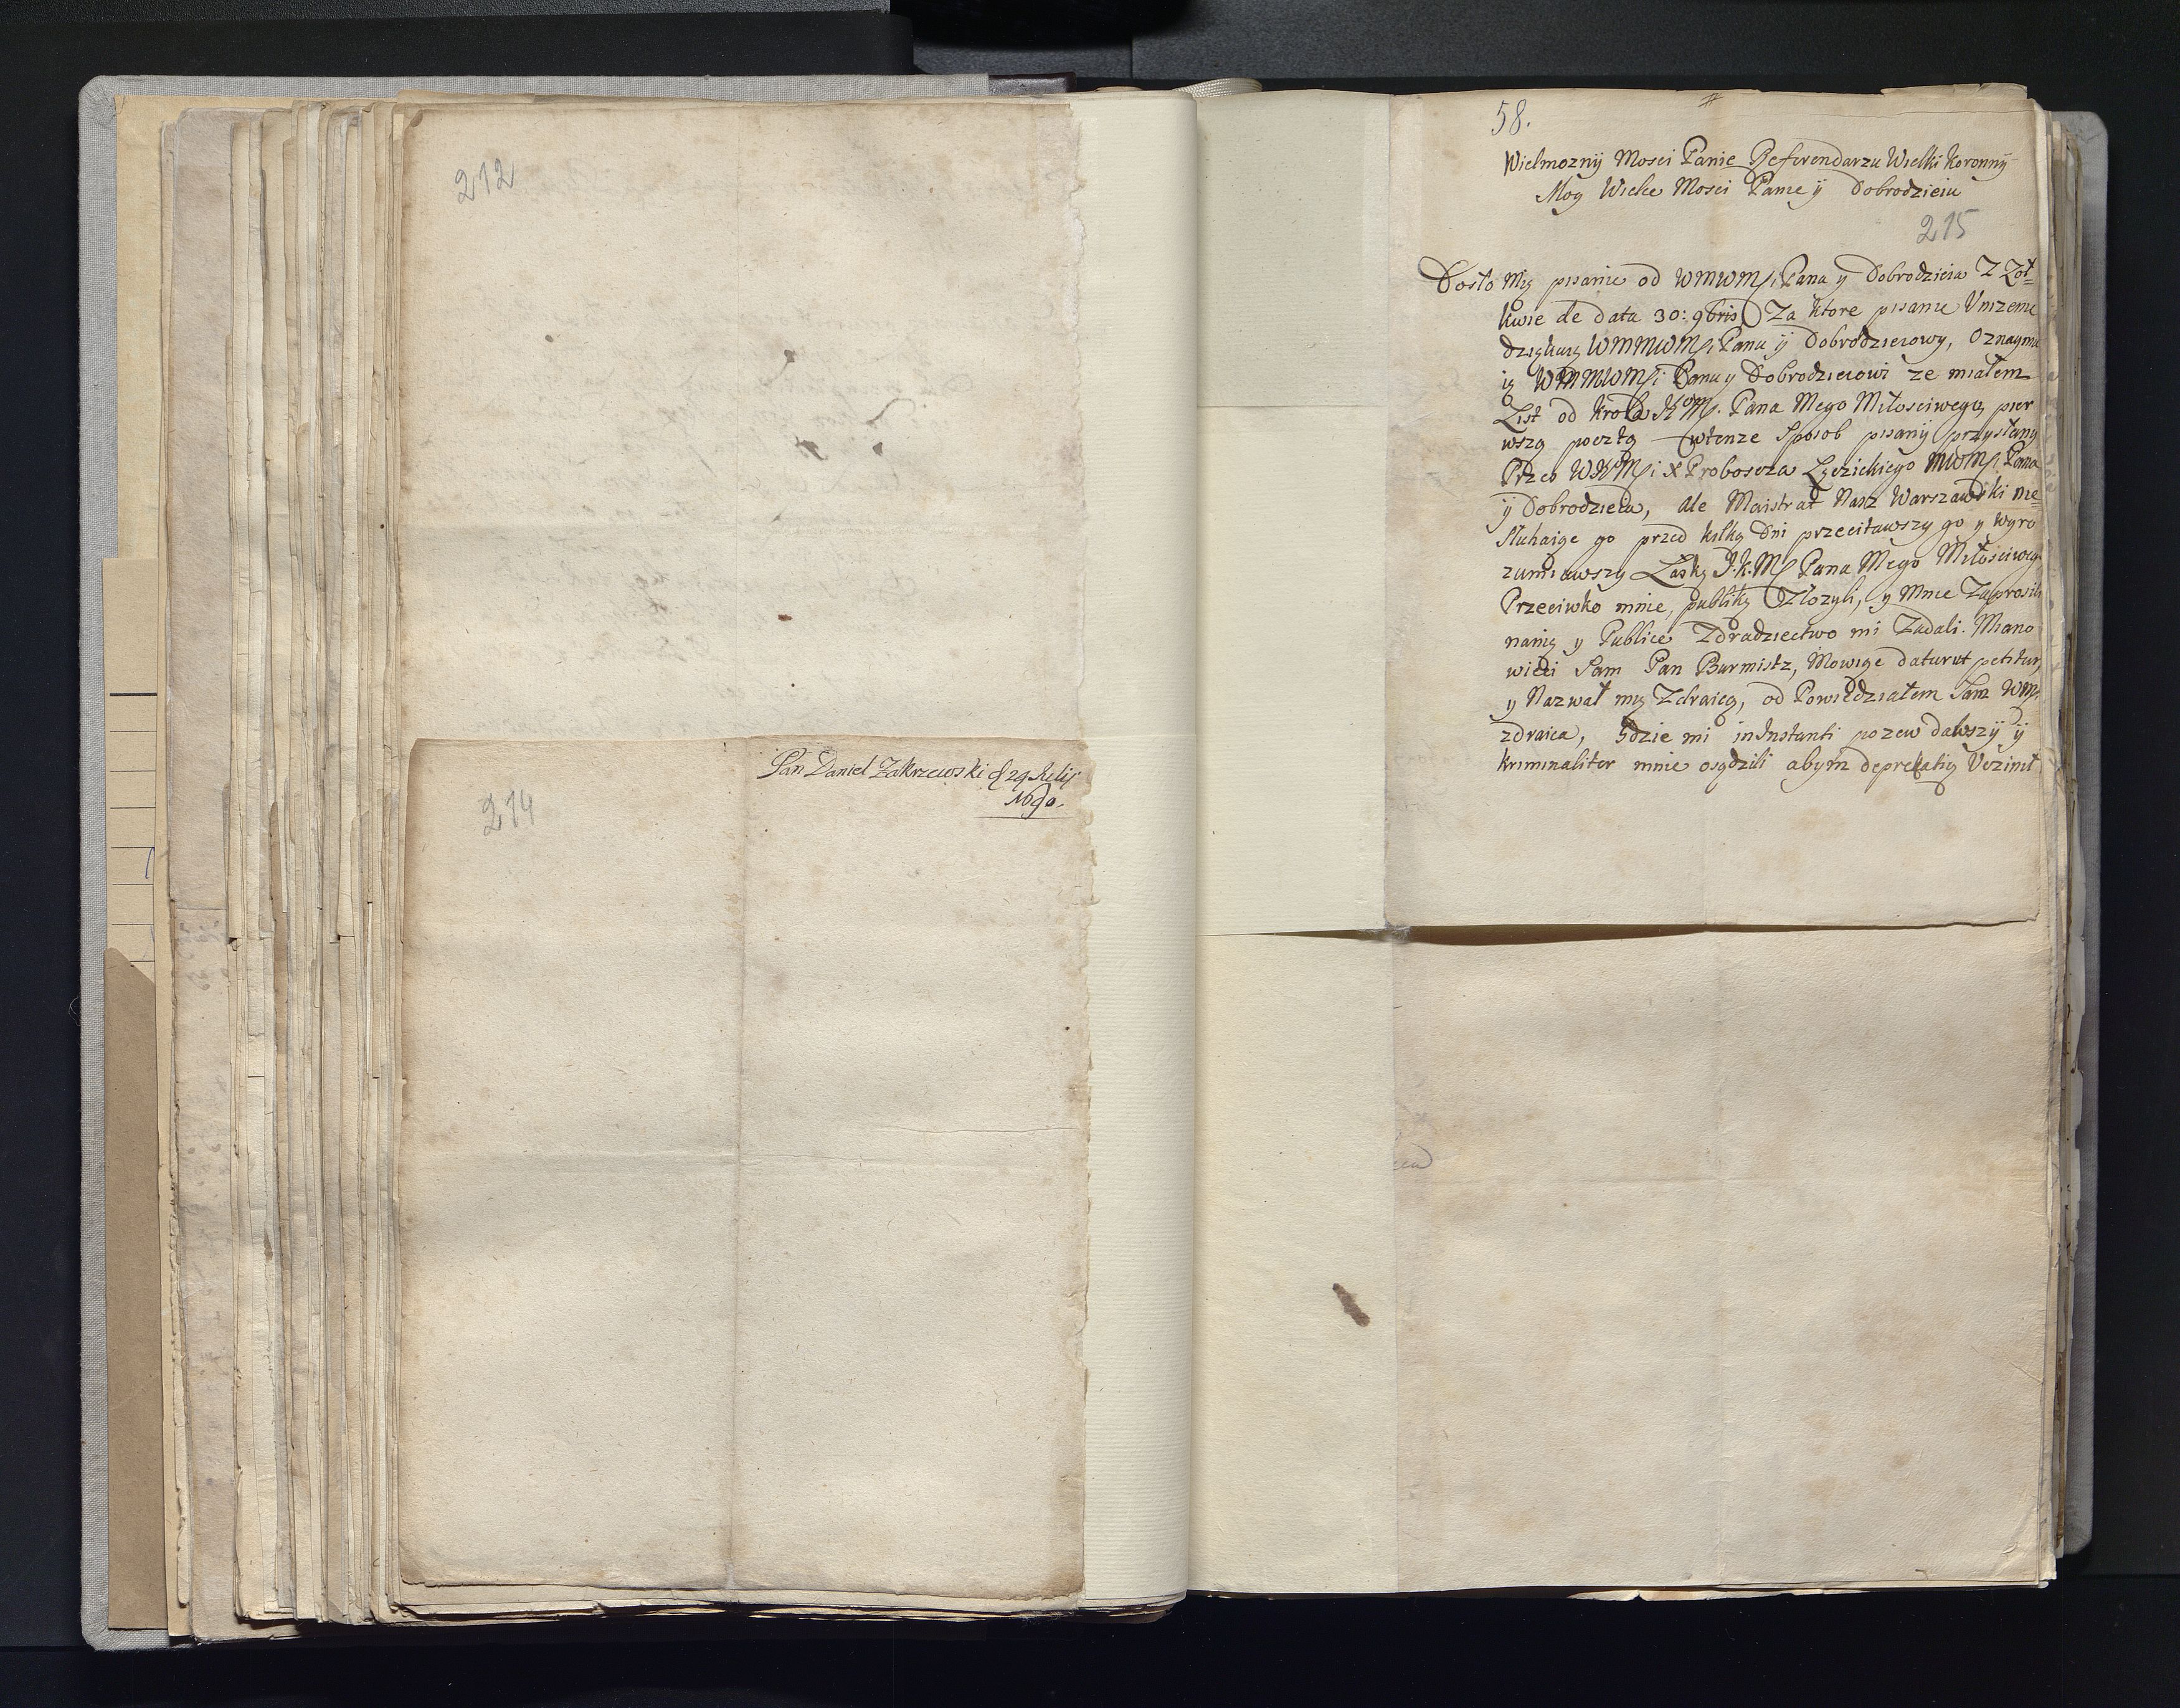 212
Pan Daniel Zakrzewski d 29 Julij
1690.
214
58.
Wielmoznÿ Mosci Panie Referendarzu Wielki Koronnÿ
Moy Wielce Mosci Panie ÿ Dobrodzieiu
215
Dosło Mię pisanie od WMWMsci Pana y Dobrodzieia Z Zoł=
kwie de data 30: 9bris Za ktore pisanie Unizenie
dziękuię WMMWMsci Panu ÿ Dobrodzieiowy, Oznaymu
ię WMMWMsci Panu y Dobrodzieiowi ze miałem
List od Krola Pana Mego Miłosciwego pier
wszą pocztą wtenze Sposob pisanÿ przysłany
Przes X Proboscza Lęczickiego MWMsci Pana
ÿ Dobrodzieia, ale Maistrat Nasz Warszawski nie=
słuhaiąc go przed kilką Dni przecitawszy go y wyro
zumiawszy Laskę J.K.Ms Pana Mego Miłosciweg
Przeciwko mnie, publikę Zlozyli, y Mnie Zaprosili
nanię y Publice Zdradziectwo mi Zadali. Miano
wicei Sam Pan Burmistz, Mowiąc datur ut petitur,
y Nazwał mię Zdraicą, od Powiedziałem Sam WMsc
zdraica, Gdzie mi in Instanti pozew dawszÿ ÿ
kriminaliter mnie osądzili abym deprekatią Uczinił